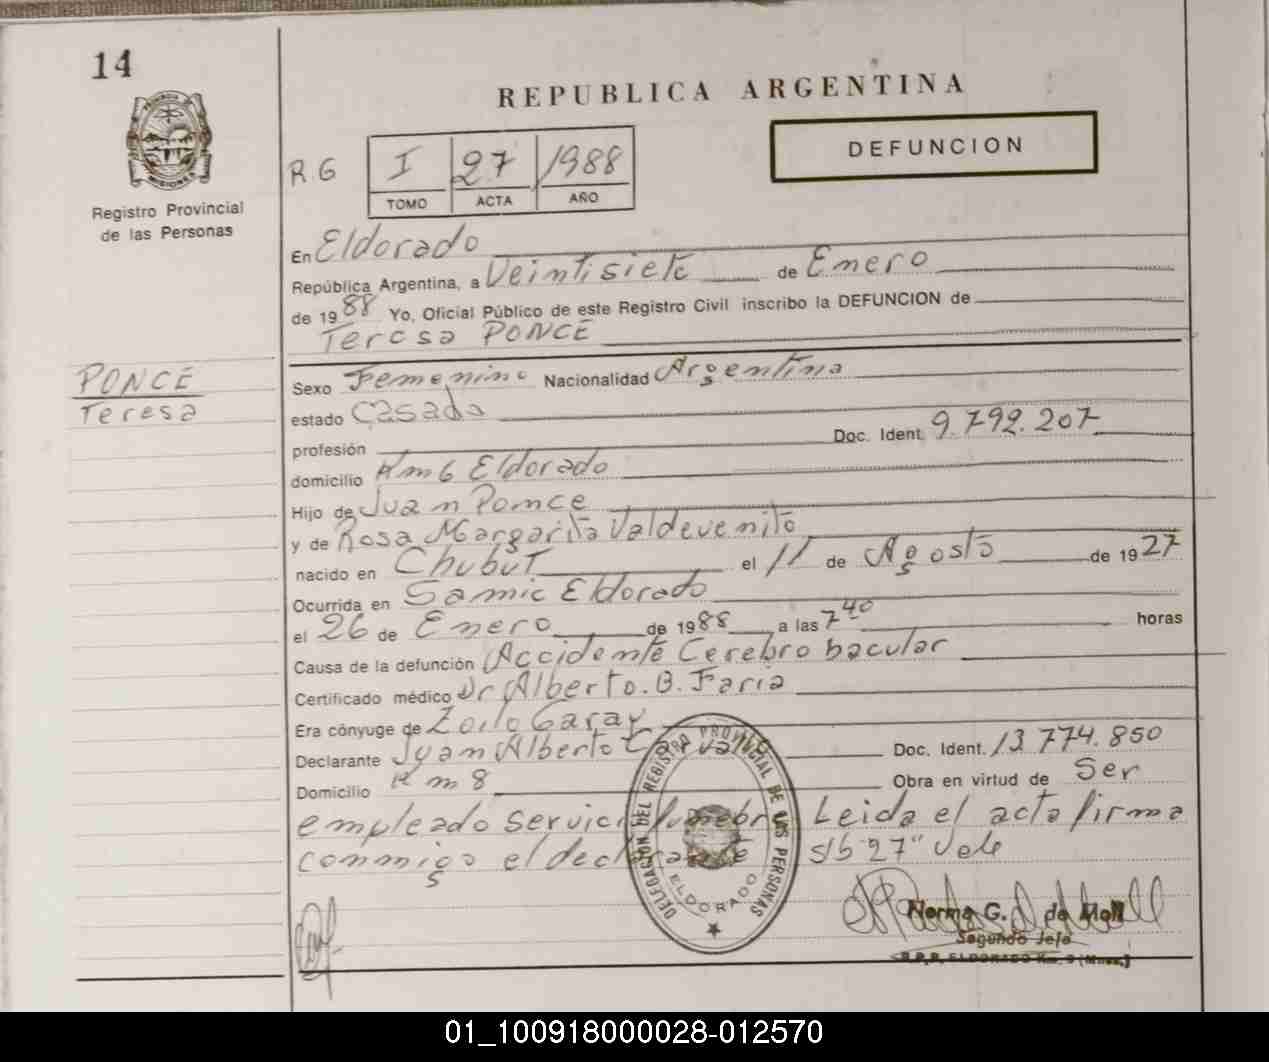 14
REPUBLICA ARGENTINA
DEFUNCION
PROVINCIA DE
MISIONES
Registro Provincial
de las Personas
R.G
I 27 1988
TOMO ACTA AÑO
En Eldorado
República Argentina, a Veintisiete de Enero
de 1988 Yo, Oficial Público de este Registro Civil inscribo la DEFUNCION de
Teresa PONCE
PONCE
Teresa
Sexo Femenino Nacionalidad Argentina
estado Casada
profesión Doc. Ident. 9.792.207
domicilio Km 6 Eldorado
Hijo de Juan Ponce
y de Rosa Margarita Valdevenito
nacido en Chubut el 11 de Agosto de 1927
Ocurrida en Samic Eldorado
el 26 de Enero de 1988 a las 7 40 horas
Causa de la defunción Accidente Cerebro bacular
Certificado médico Dr Alberto. B. Faria
Era cónyuge de Zoilo Garay
Declarante Juan Alberto Doc. Ident. 13.774.850
Domicilio Km 8 Obra en virtud de Ser
empleado servicio funebre Leida el acta firma
conmigo el declarante s/b 27" Vale
DELEGACION DEL REGISTRO PROVINCIAL DE LAS PERSONAS
ELDORADO
Norma G. de Moll
Segundo Jefe
R.P.P. ELDORADO Km. 9 (Mnes.)
01_100918000028-012570